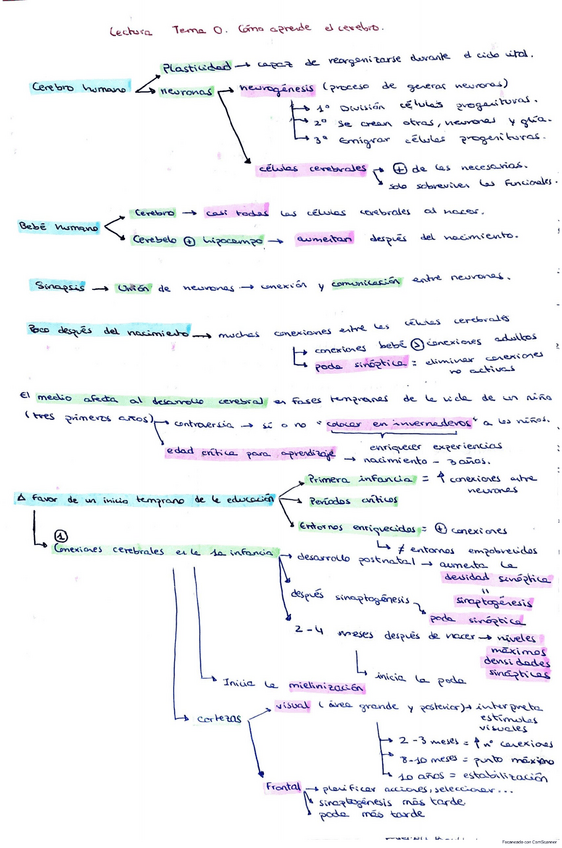 Lectura Tema 0. Cómo aprende el cerebro.
Plasticidad → capaz de reorganizarse durante el ciclo vital.
Cerebro humano → neuronas → neurogénesis (proceso de generar neuronas)
→ 1º División células progenitoras.
→ 2º Se crean otras, neuronas y glía.
→ 3º Emigrar células progenitoras.
células cerebrales → + de las necesarias.
solo sobreviven las funcionales.
Cerebro → casi todas las células cerebrales al nacer.
Bebé humano
Cerebelo + hipocampo → aumentan después del nacimiento.
Sinapsis → Unión de neuronas → conexión y comunicación entre neuronas.
Poco después del nacimiento → muchas conexiones entre las células cerebrales
→ conexiones bebé > conexiones adultos
→ poda sináptica = eliminar conexiones
no activas
El medio afecta al desarrollo cerebral en fases tempranas de la vida de un niño
(tres primeros años) → controversia → si o no "colocar en invernaderos" a los niños.
enriquecer experiencias
edad crítica para aprendizaje → nacimiento - 3 años.
Primera infancia = ↑ conexiones entre
neuronas
A favor de un inicio temprano de la educación → Períodos críticos
Entornos enriquecidos = + conexiones
↳ ≠ entornos empobrecidos
① Conexiones cerebrales en la 1a infancia → desarrollo postnatal → aumenta la
densidad sináptica
=
después sinaptogénesis sinaptogénesis
poda sináptica
2-4 meses después de nacer → niveles
máximos
densidades
sinápticas
↳ inicia la poda
Inicia la mielinización
visual (área grande y posterior) → interpreta
estímulos
visuales
cortezas
→ 2-3 meses = ↑ nº conexiones
→ 8-10 meses = punto máximo
→ 10 años = estabilización
Frontal → planificar acciones, seleccionar...
sinaptogénesis más tarde
poda más tarde
Escaneado con CamScanner